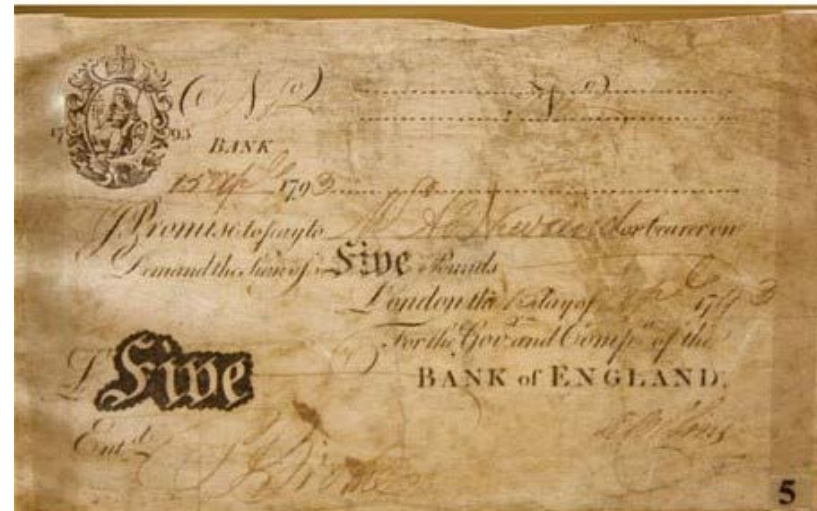 No
No
17 93
BANK
15 Ap 1793
I Promise to pay to Mr or bearer on
Demand the Sum of Five Pounds
London the 15 day of Ap 1793
For the Govr. and Compa. of the
£ Five
BANK of ENGLAND.
Entd.
5